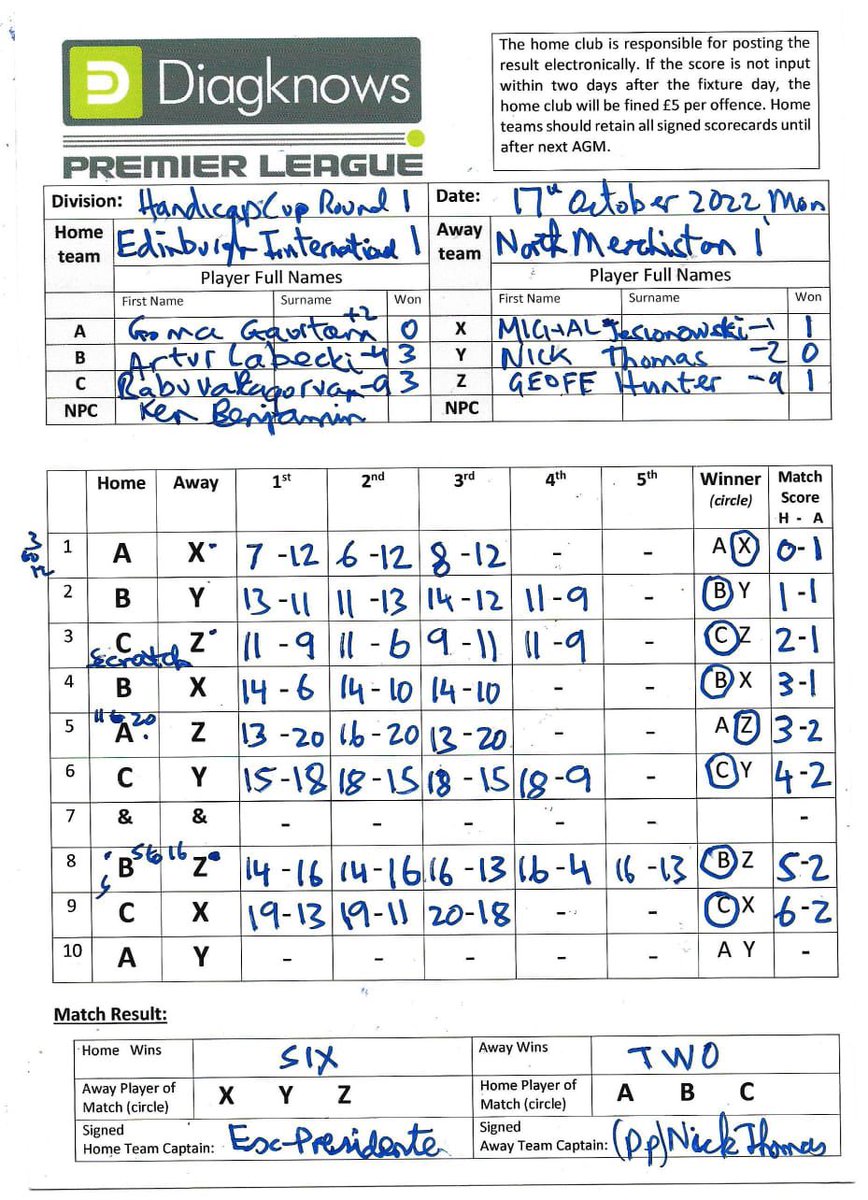 Diagknows
PREMIER LEAGUE
The home club is responsible for posting the
result electronically. If the score is not input
within two days after the fixture day, the
home club will be fined £5 per offence. Home
teams should retain all signed scorecards until
after next AGM.
Division: Handicap Cup Round 1 Date: 17th October 2022 Mon
Home team Edinburgh International 1 Away team North Merchiston 1
Player Full Names Player Full Names
First Name Surname Won First Name Surname Won
+2
A Goma Gautam 0 X MICHAL Jesionowski -1 1
B Artur Labecki -4 3 Y NICK Thomas -2 0
C -9 3 Z GEOFF Hunter -9 1
NPC Ken Benjamin NPC
Home Away 1st 2nd 3rd 4th 5th Winner (circle) Match Score H - A
1 A X 7 - 12 6 - 12 8 - 12 - - A X 0-1
2 B Y 13 - 11 11 - 13 14 - 12 11 - 9 - B Y 1-1
3 C Z 11 - 9 11 - 6 9 - 11 11 - 9 - C Z 2-1
Scratch
4 B X 14 - 6 14 - 10 14 - 10 - - B X 3-1
11 to 20
5 A Z 13 - 20 16 - 20 13 - 20 - - A Z 3-2
6 C Y 15 - 18 18 - 15 18 - 15 18 - 9 - C Y 4-2
7 & & - - - - - -
5 to 16
8 B Z 14 - 16 14 - 16 16 - 13 16 - 4 16 - 13 B Z 5-2
9 C X 19 - 13 19 - 11 20 - 18 - - C X 6-2
10 A Y - - - - - A Y -
Match Result:
Home Wins SIX Away Wins TWO
Away Player of Match (circle) X Y Z Home Player of Match (circle) A B C
Signed Home Team Captain: Esc-Presidente Signed Away Team Captain: (pp) Nick Thomas